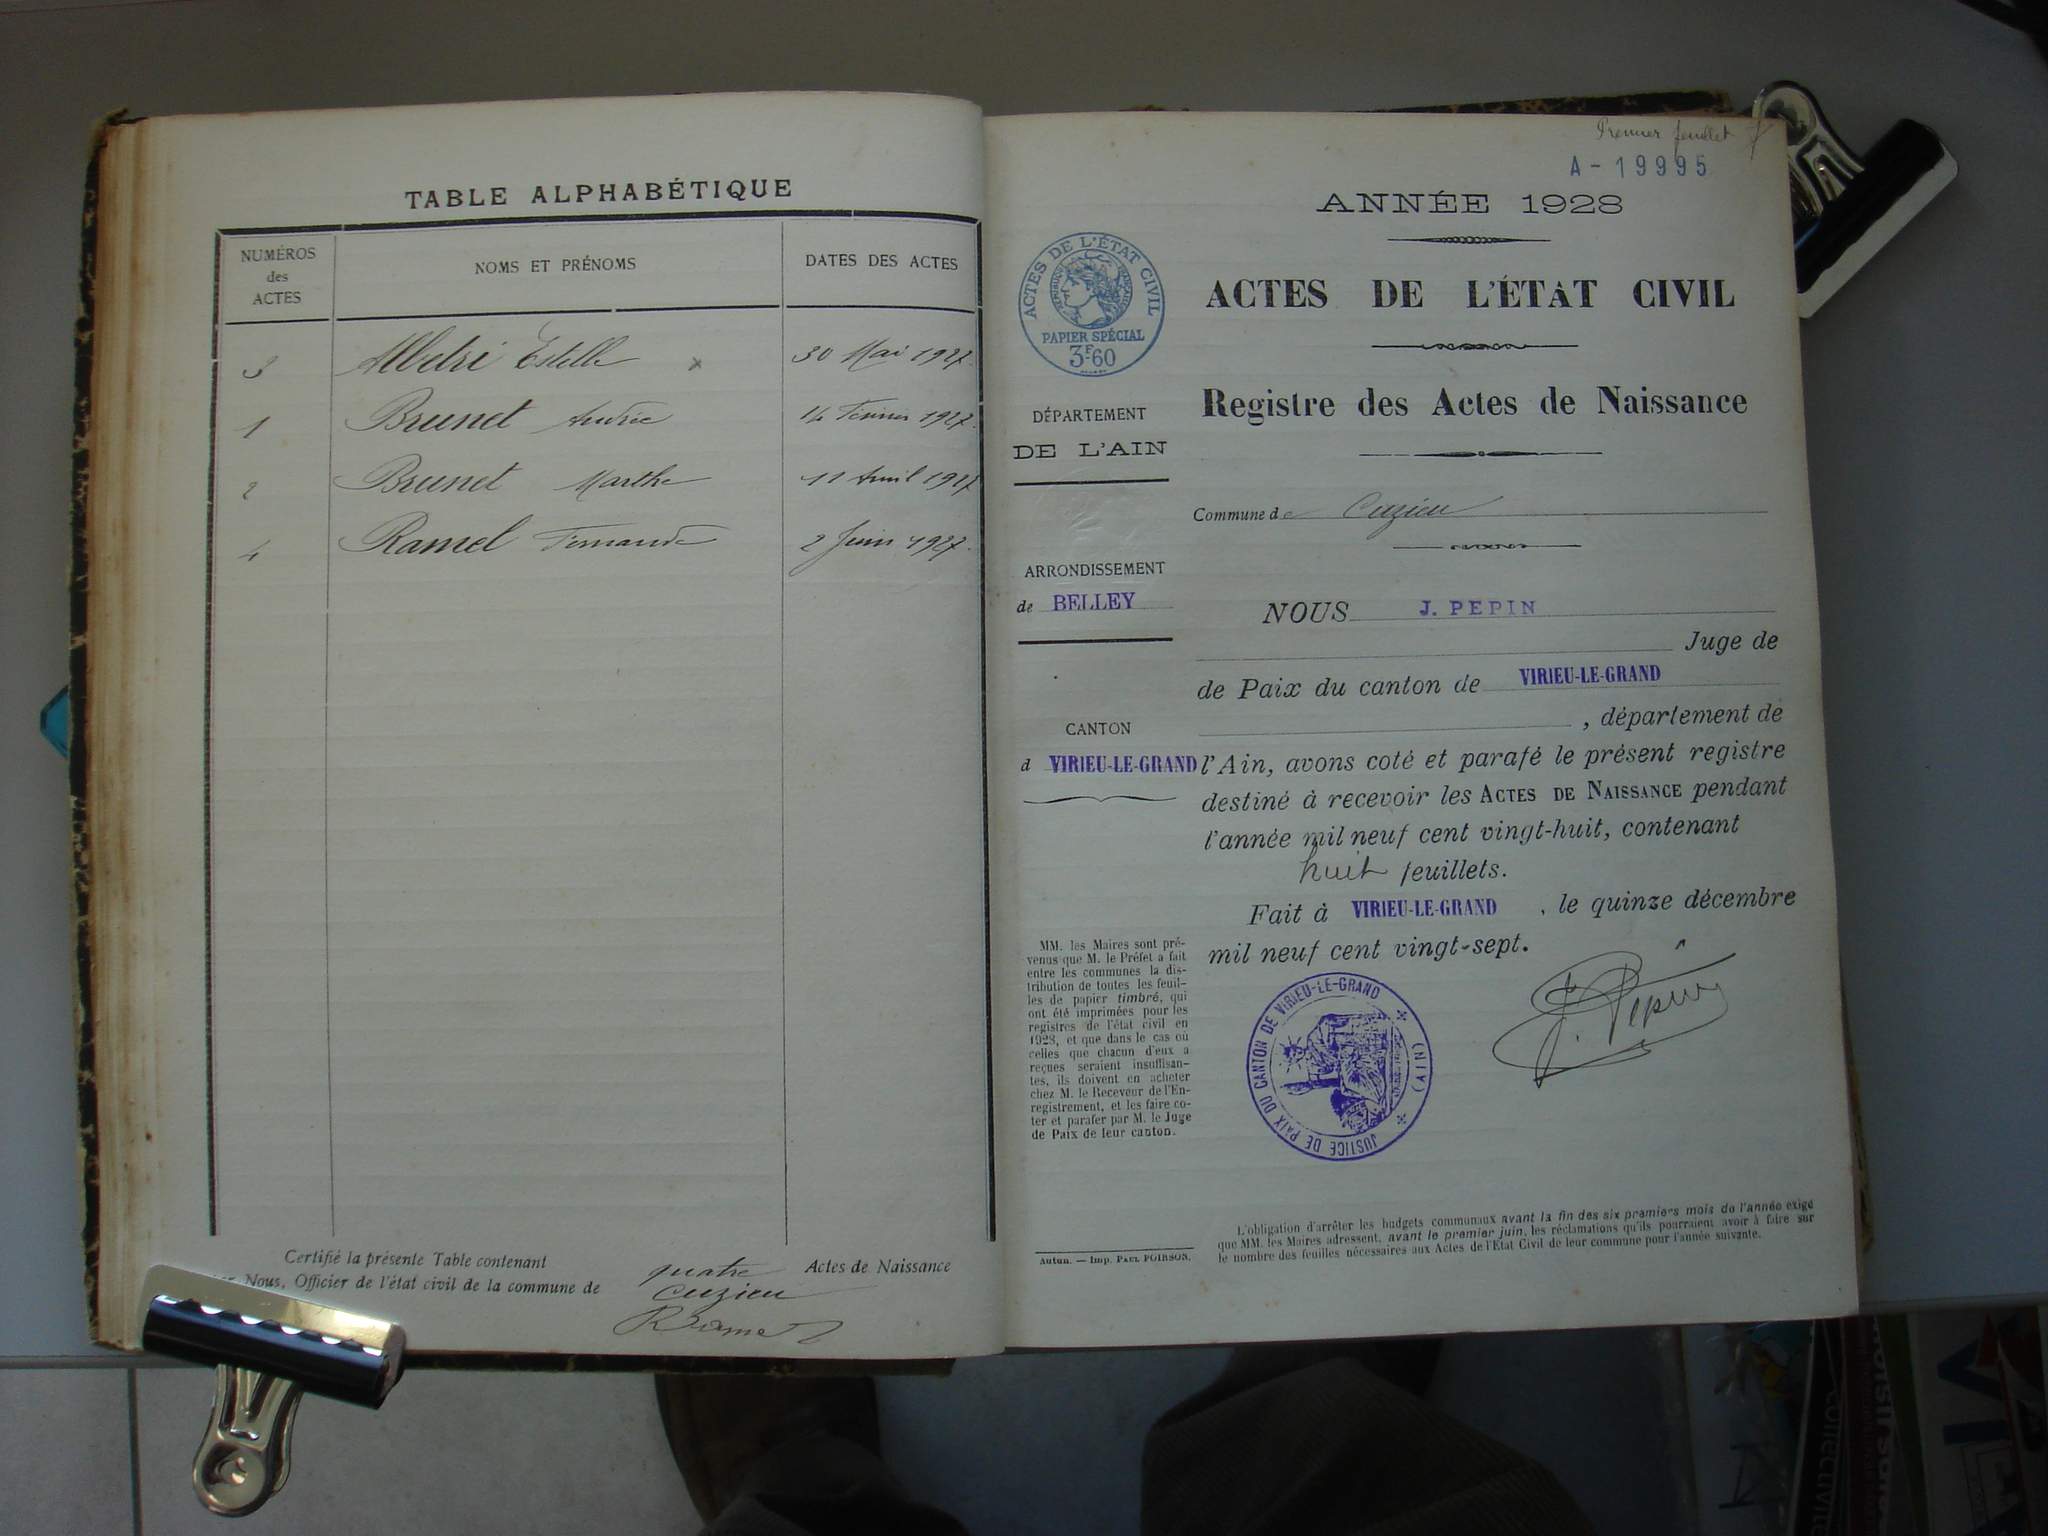 TABLE ALPHABÉTIQUE
NUMÉROS
des
ACTES
NOMS ET PRÉNOMS
DATES DES ACTES
3 Estelle 30 Mai 1927
1 Brunet Andrée 14 Février 1927
2 Brunet Marthe 11 Avril 1927
4 Ramel Fernande 2 Juin 1927
Certifié la présente Table contenant quatre Actes de Naissance
Nous, Officier de l'état civil de la commune de Cuzieu
Ramel
Premier feuillet
A - 19995
ANNÉE 1928
ACTES DE L'ÉTAT CIVIL
RÉPUBLIQUE FRANÇAISE
PAPIER SPÉCIAL
3F60
ACTES DE L'ÉTAT CIVIL
Registre des Actes de Naissance
DÉPARTEMENT
DE L'AIN
Commune de Cuzieu
ARRONDISSEMENT
de BELLEY
CANTON
d VIRIEU-LE-GRAND
NOUS J. PEPIN
Juge de
de Paix du canton de VIRIEU-LE-GRAND
, département de
l'Ain, avons coté et parafé le présent registre
destiné à recevoir les ACTES DE NAISSANCE pendant
l'année mil neuf cent vingt-huit, contenant
huit feuillets.
Fait à VIRIEU-LE-GRAND , le quinze décembre
mil neuf cent vingt-sept.
J. Pepin
JUSTICE DE PAIX DU CANTON DE VIRIEU-LE-GRAND
(AIN)
MM. les Maires sont pré-
venus que M. le Préfet a fait
entre les communes la dis-
tribution de toutes les feuil-
les de papier timbré, qui
ont été imprimées pour les
registres de l'état civil en
1928, et que dans le cas où
celles que chacun d'eux a
reçues seraient insuffisan-
tes, ils doivent en acheter
chez M. le Receveur de l'En-
registrement, et les faire co-
ter et parafer par M. le Juge
de Paix de leur canton.
Autun. — Imp. PAUL POIRSON.
L'obligation d'arrêter les budgets communaux avant la fin des six premiers mois de l'année exige
que MM. les Maires adressent, avant le premier juin, les réclamations qu'ils pourraient avoir à faire sur
le nombre des feuilles nécessaires aux Actes de l'Etat Civil de leur commune pour l'année suivante.